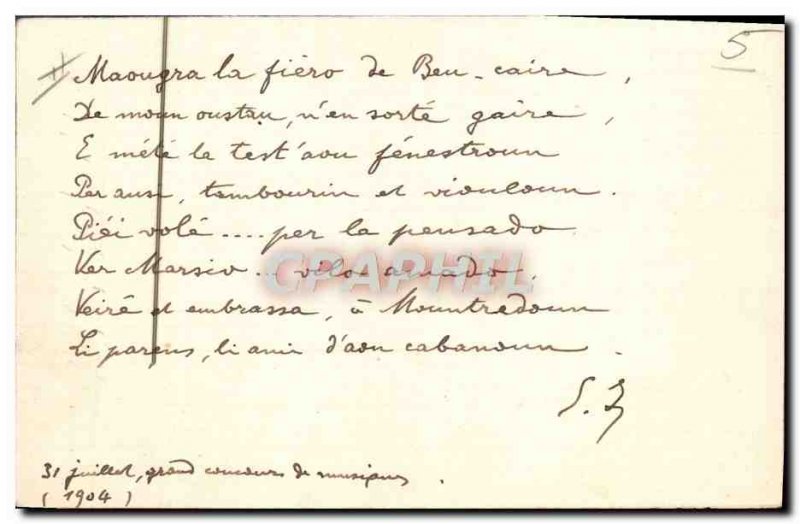 5
Maougra la fièro de Beu-caire,
De moun oustau, n'en sorté gaire,
E mété la test'aou fénestroun
Per ausi, tambourin et viouloun.
Pièi volé .... per la pensado
Ver Marsio... vilo amado.
Veiré et embrassa, à Mountredoun
Li parens, li ami d'aou cabanoun.
31 juillet, grand concours de musiques.
(1904)
CPAPHIL